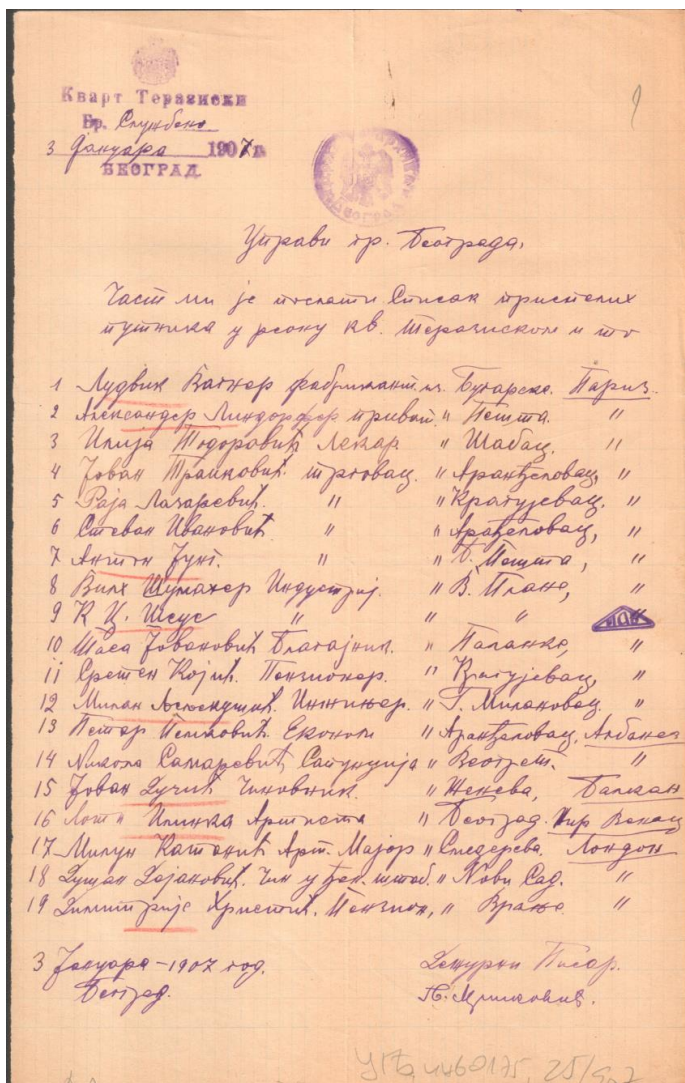 Кварт Теразиски
Бр. Службено
3 Јануара 1907 г.
БЕОГРАД.
Управи гр. Београда,
Част ми је послати Списак приспелих
путника у реону кв. Теразиском и то
1 Лудвик Вагнер фабрикант из. Бугарске. Париз.
2 Александер Линдорфер приват. " Пешта. "
3 Илија Тодоровић Лекар. " Шабац. "
4 Јован Трајковић трговац. " Аранђеловац, "
5 Раја Лазаревић. " " Крагујевац, "
6 Стеван Ивановић. " " Аранђеловац, "
7 Антон Јунг. " " Б. Пешта, "
8 Вилх Шумахер Индустриј. " В. Плана, "
9 К. И. " " "
10 Таса Јовановић Благајник. " Паланка, "
11 Сретен Којић. Пензионер. " Крагујевац, "
12 Милан Инжињер. " Г. Милановац. "
13 Петар Економ " Аранђеловац, Албанез
14 Никола Самаревић Сапунџија " Београд. "
15 Јован Дучић Чиновник. " Женева, Балкан
16 Илинка Артиста " Београд. Венац
17 Милун Арт. Мајор " Смедерево, Лондон
18 Душан Чин у штаб. " Нови Сад. "
19 Димитрије Христић. Пензион, " Врање "
3 Јануара – 1907 год. Дежурни Писар.
Београд.
25/907